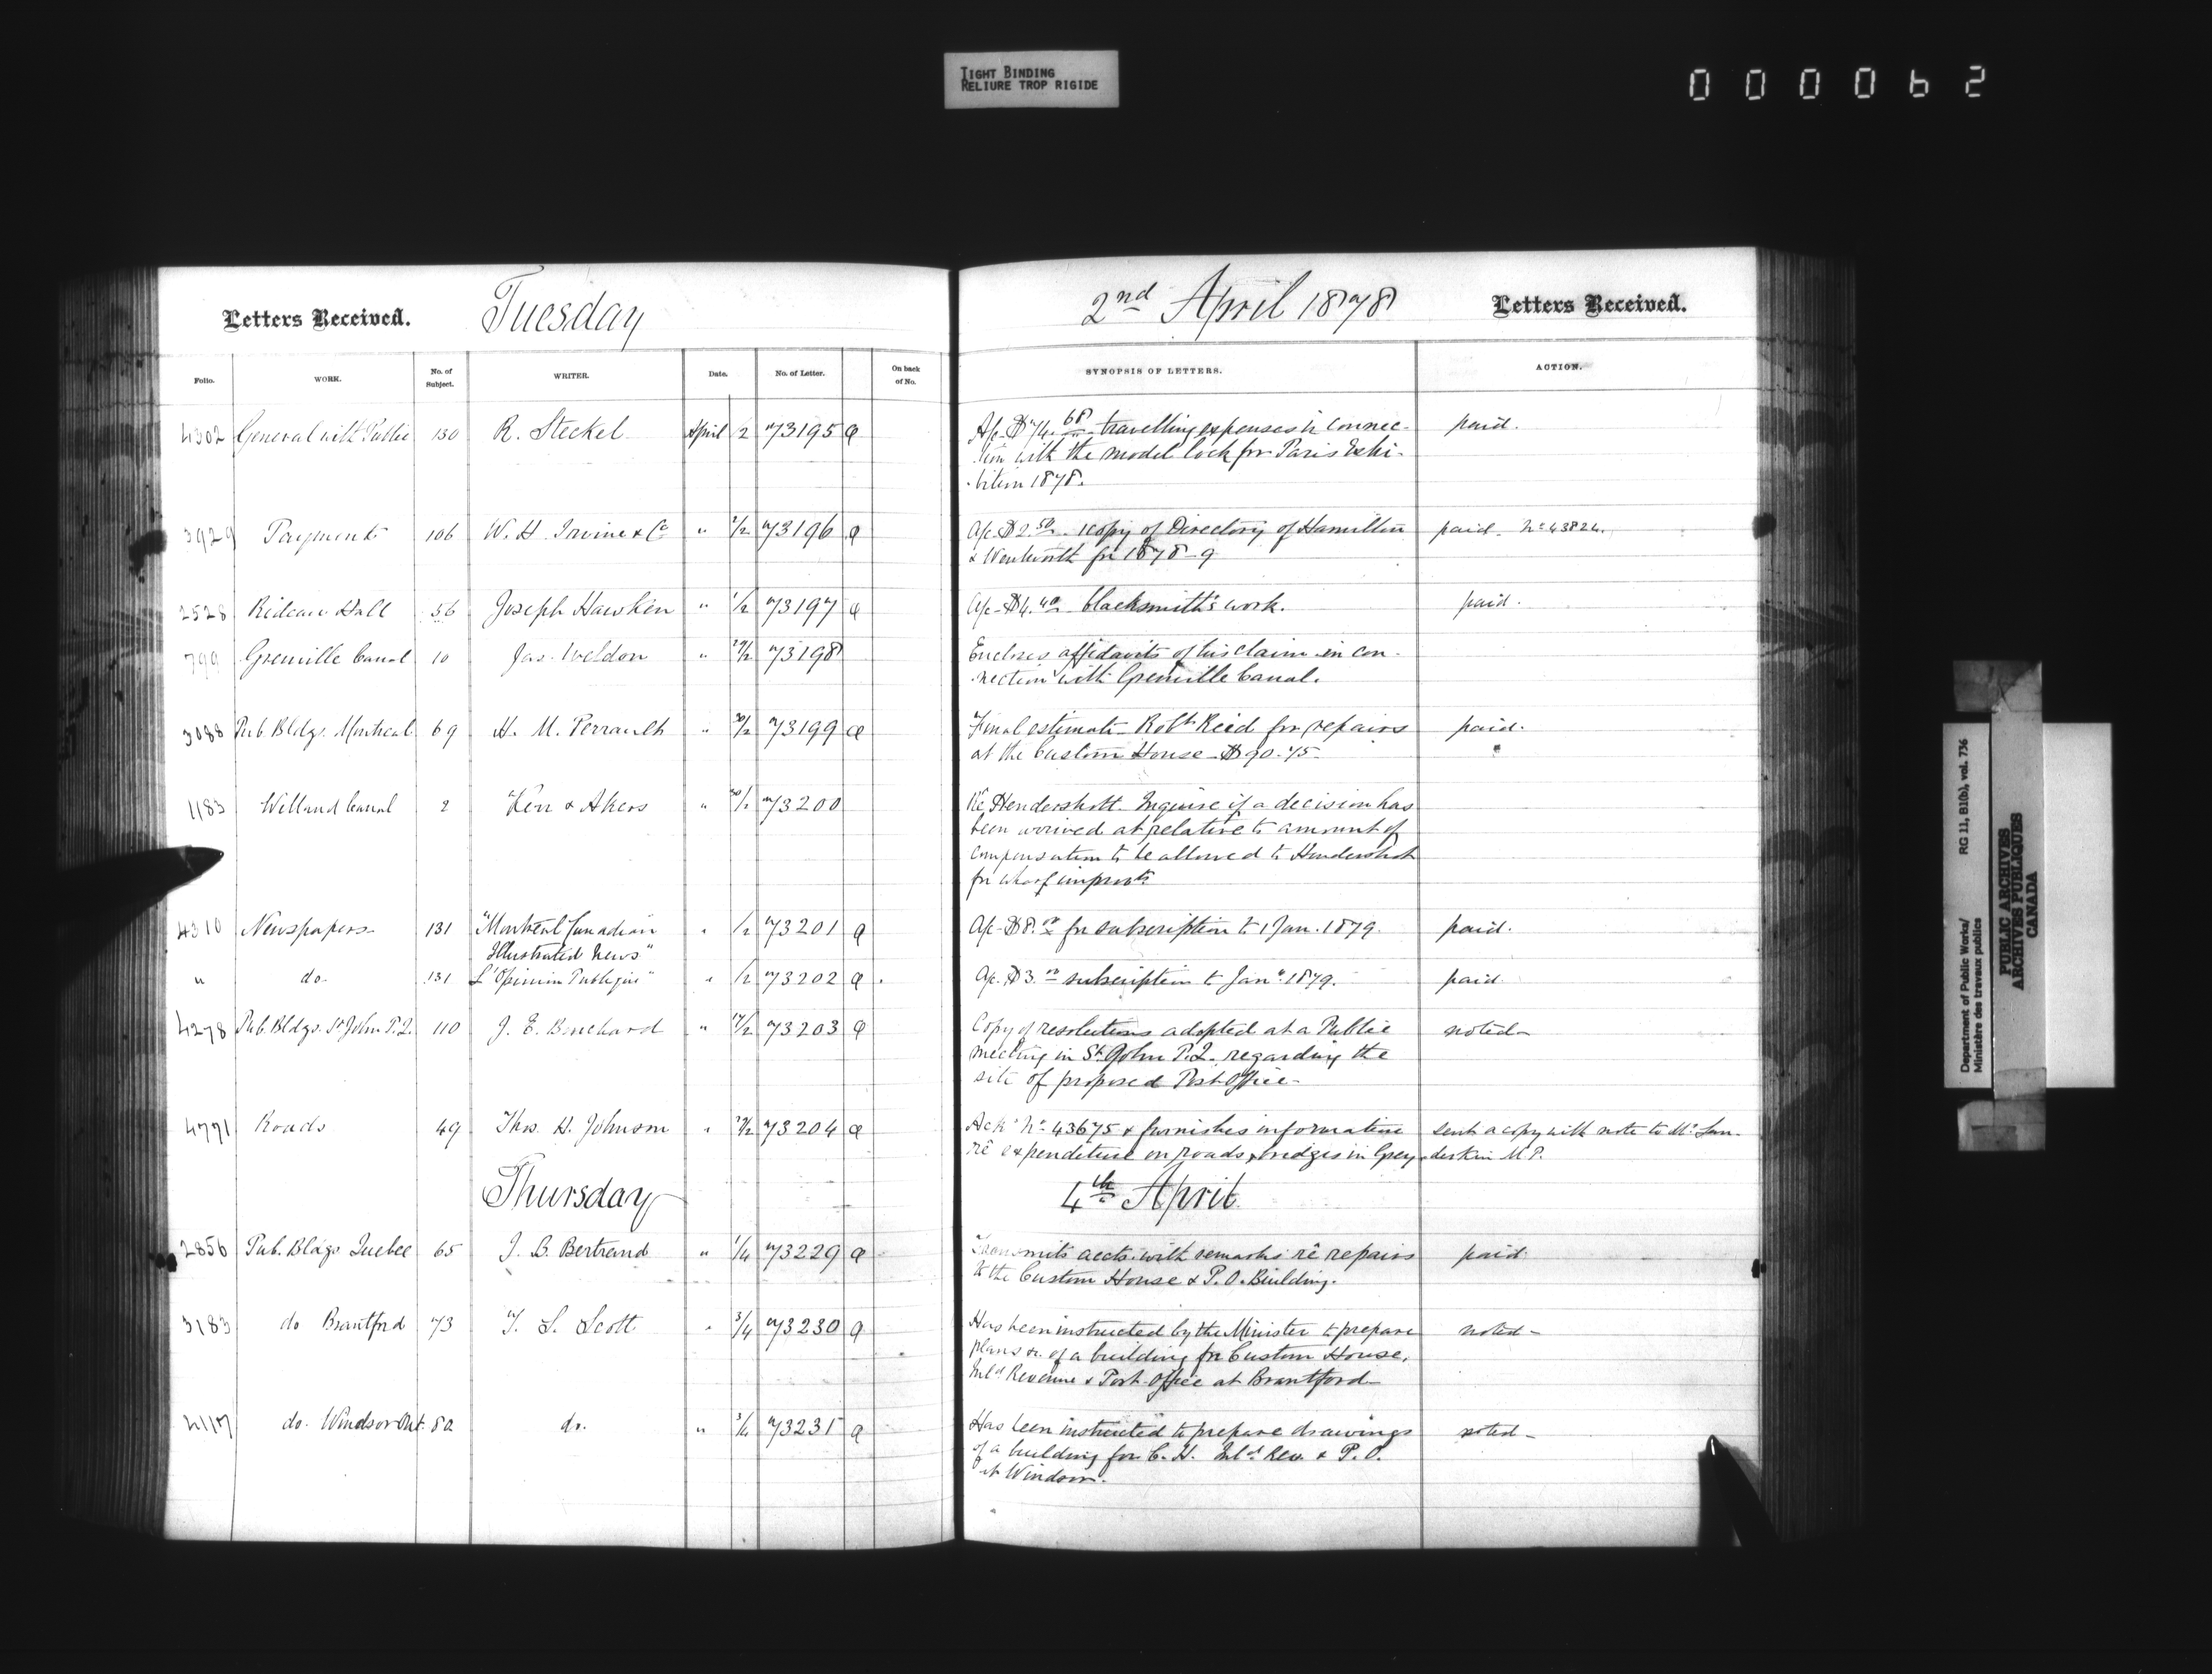 TIGHT BINDING
RELIURE TROP RIGIDE
000062
Letters Received. Tuesday 2nd April 1878 Letters Received.
Folio. WORK. No. of Subject. WRITER. Date. No. of Letter. On back of No. SYNOPSIS OF LETTERS. ACTION.
4302 General with Public 130 R. Steckel April /2 73195 a A/c $74.68 travelling expenses in connec- paid.
tion with the model lock for Paris Exhi-
bition 1878.
3929 Payments 106 W. H. Irvine & Co " 2/2 73196 a a/c $2.50 1 copy of Directory of Hamilton paid. No 43824.
& Wentworth for 1878-9
2528 Rideau Hall 56 Joseph Hawken " 1/2 73197 a a/c $4.40 blacksmith's work. paid.
799 Grenville Canal 10 Jas. Weldon " 29/2 73198 Encloses affidavits of his claim in con-
nection with Grenville Canal.
3088 Pub. Bldgs. Montreal 69 H. M. Perrault " 30/2 73199 a Final estimate Robt Reid for repairs paid.
at the Custom House $90.75
1183 Welland Canal 2 Kerr & Akers " 30/2 73200 Re Hendershott. Inquire if a decision has
been arrived at relative to amount of
compensation to be allowed to Hendershott
for wharf improvts
4310 Newspapers 131 "Montreal Canadian " /2 73201 a a/c $8.00 for subscription to 1 Jan. 1879. paid.
Illustrated News"
" do. 131 L'Opinion Publique" " /2 73202 a a/c $3.00 subscription to Jany 1879. paid.
4278 Pub. Bldgs. St John P.Q. 110 J. E. Bouchard " 17/2 73203 a Copy of resolutions adopted at a Public noted
meeting in St John P.Q. regarding the
site of proposed Post Office.
4771 Roads 49 Thos. H. Johnson " 73204 a Ack No 43675 & furnishes information sent a copy with note to Mr Lan-
re expenditure on roads, bridges in Grey. derkin M.P.
Thursday 4th April
2856 Pub. Bldgs Quebec 65 J. B. Bertrand " 1/4 73229 a Transmits accts. with remarks re repairs paid.
to the Custom House & P.O. Building.
3183 do Brantford 73 T. S. Scott " 3/4 73230 a Has been instructed by the Minister to prepare noted
plans &c. of a building for Custom House,
Inld Revenue & Post Office at Brantford
4117 do. Windsor Ont. 82 do. " 3/4 73231 a Has been instructed to prepare drawings noted
of a building for C. H. Inld Rev. & P. O.
at Windsor.
Department of Public Works/
Ministère des travaux publics
RG 11, B1(b), vol. 736
PUBLIC ARCHIVES
ARCHIVES PUBLIQUES
CANADA